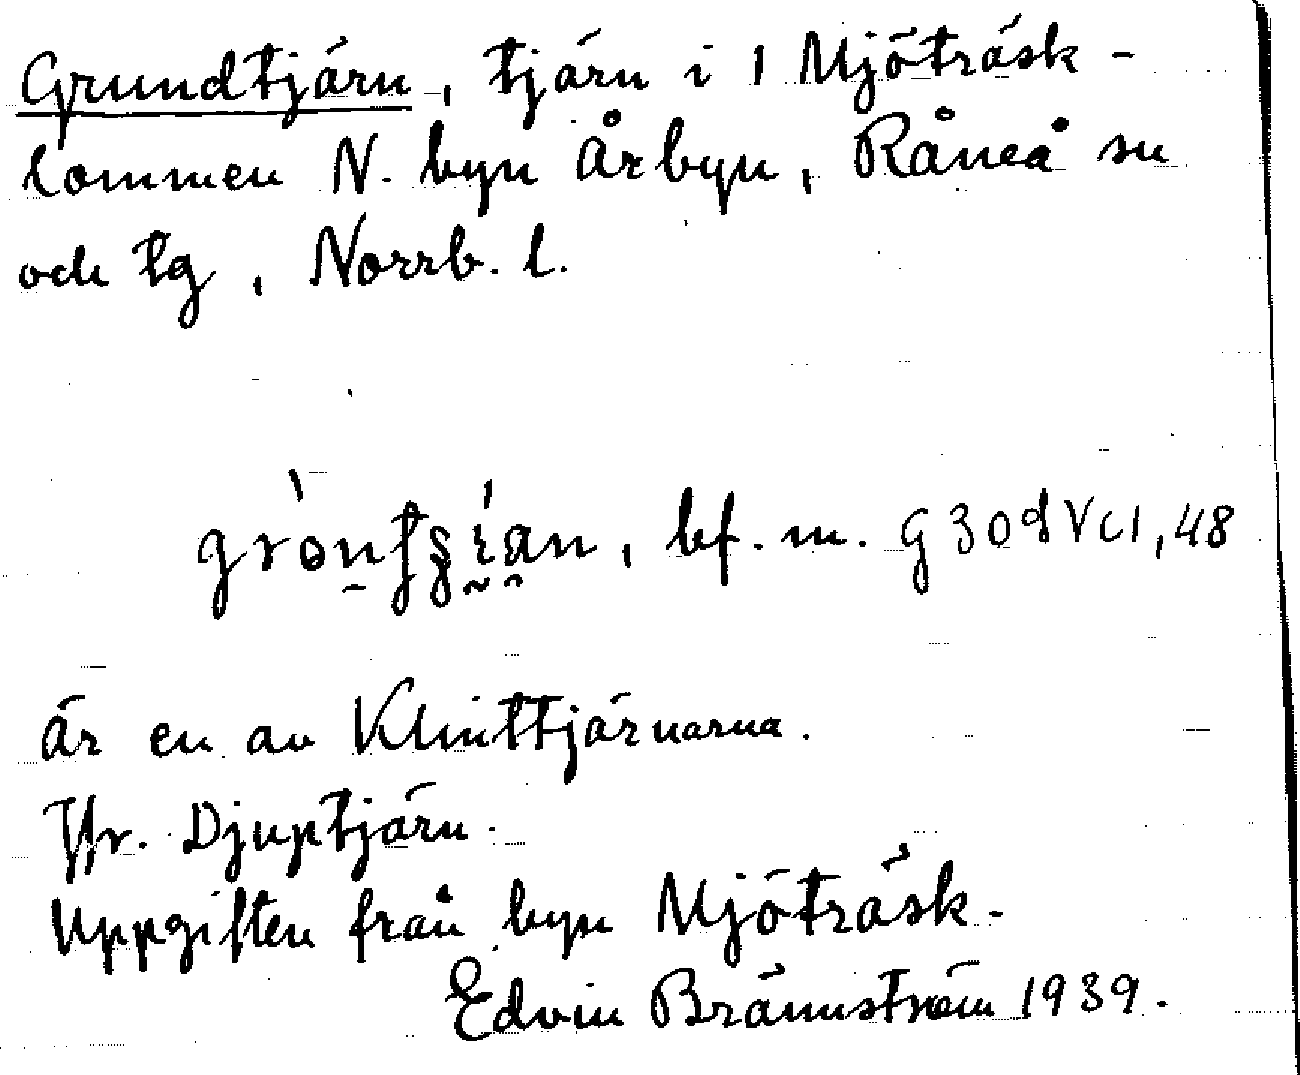 Grundtjärn, tjärn i 1 Mjöträsk-
lommen N. byn Årbyn, Råneå sn
och tg, Norrb. l.
bf. m. G30dVc1,48
Är en av Klinttjärnarna.
Jfr. Djuptjärn.
Uppgiften från byn Mjöträsk.
Edvin Brännström 1939.